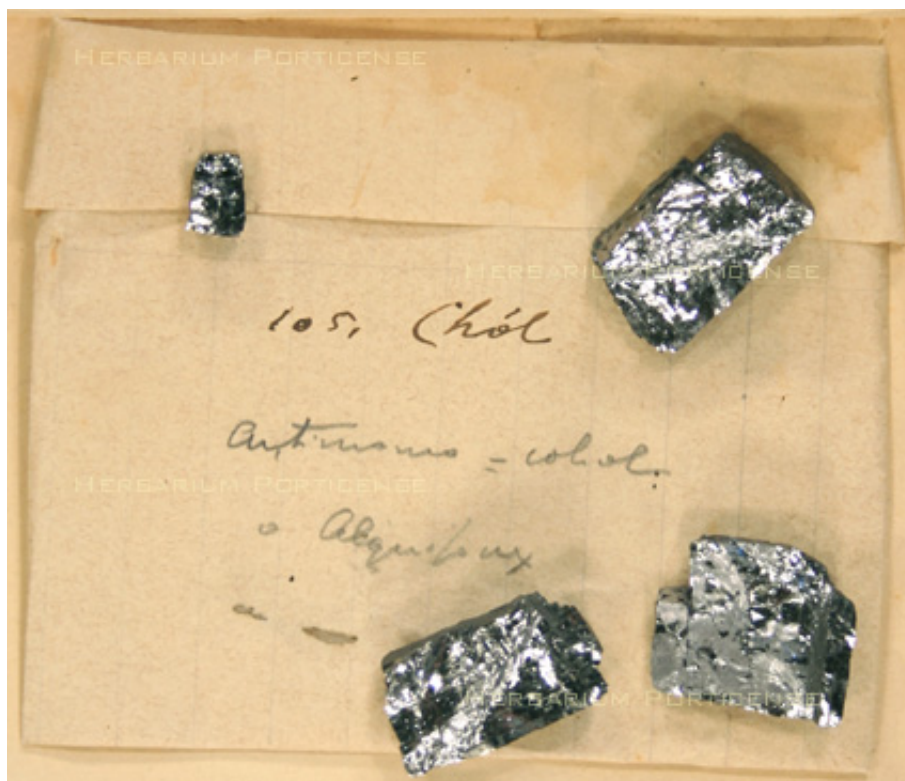 HERBARIUM PORTICENSE
HERBARIUM PORTICENSE
105. Chól
Antimonio = cohol.
HERBARIUM PORTICENSE
o Alquifoux
HERBARIUM PORTICENSE